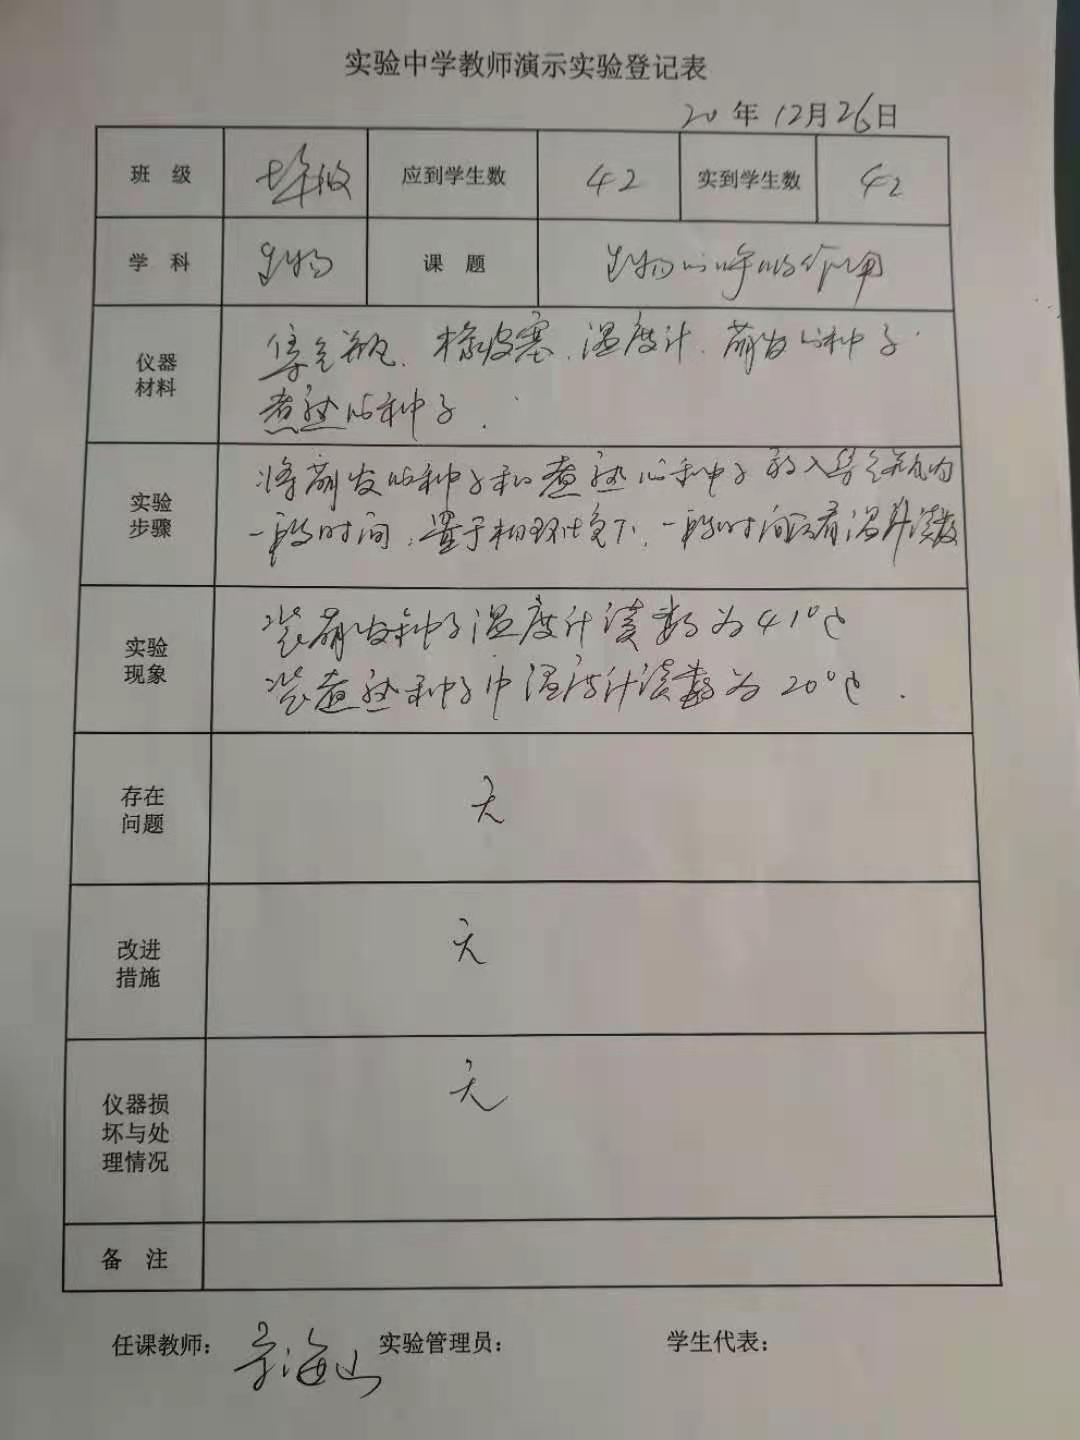 实验中学教师演示实验登记表
20年12月26日
班 级 七年级 应到学生数 42 实到学生数 42
学 科 生物 课 题 生物的呼吸作用
仪器
材料
集气瓶、橡皮塞、温度计、萌发的种子
煮熟的种子.
实验
步骤
将萌发的种子和煮熟的种子放入集气瓶内
一段时间,置于相环境下,一段时间后看温升读数
实验
现象
装萌发种子温度计读数为41℃
装煮熟种子中温度计读数为20℃.
存在
问题
无
改进
措施
无
仪器损
坏与处
理情况
无
备 注
任课教师: 海山 实验管理员: 学生代表: